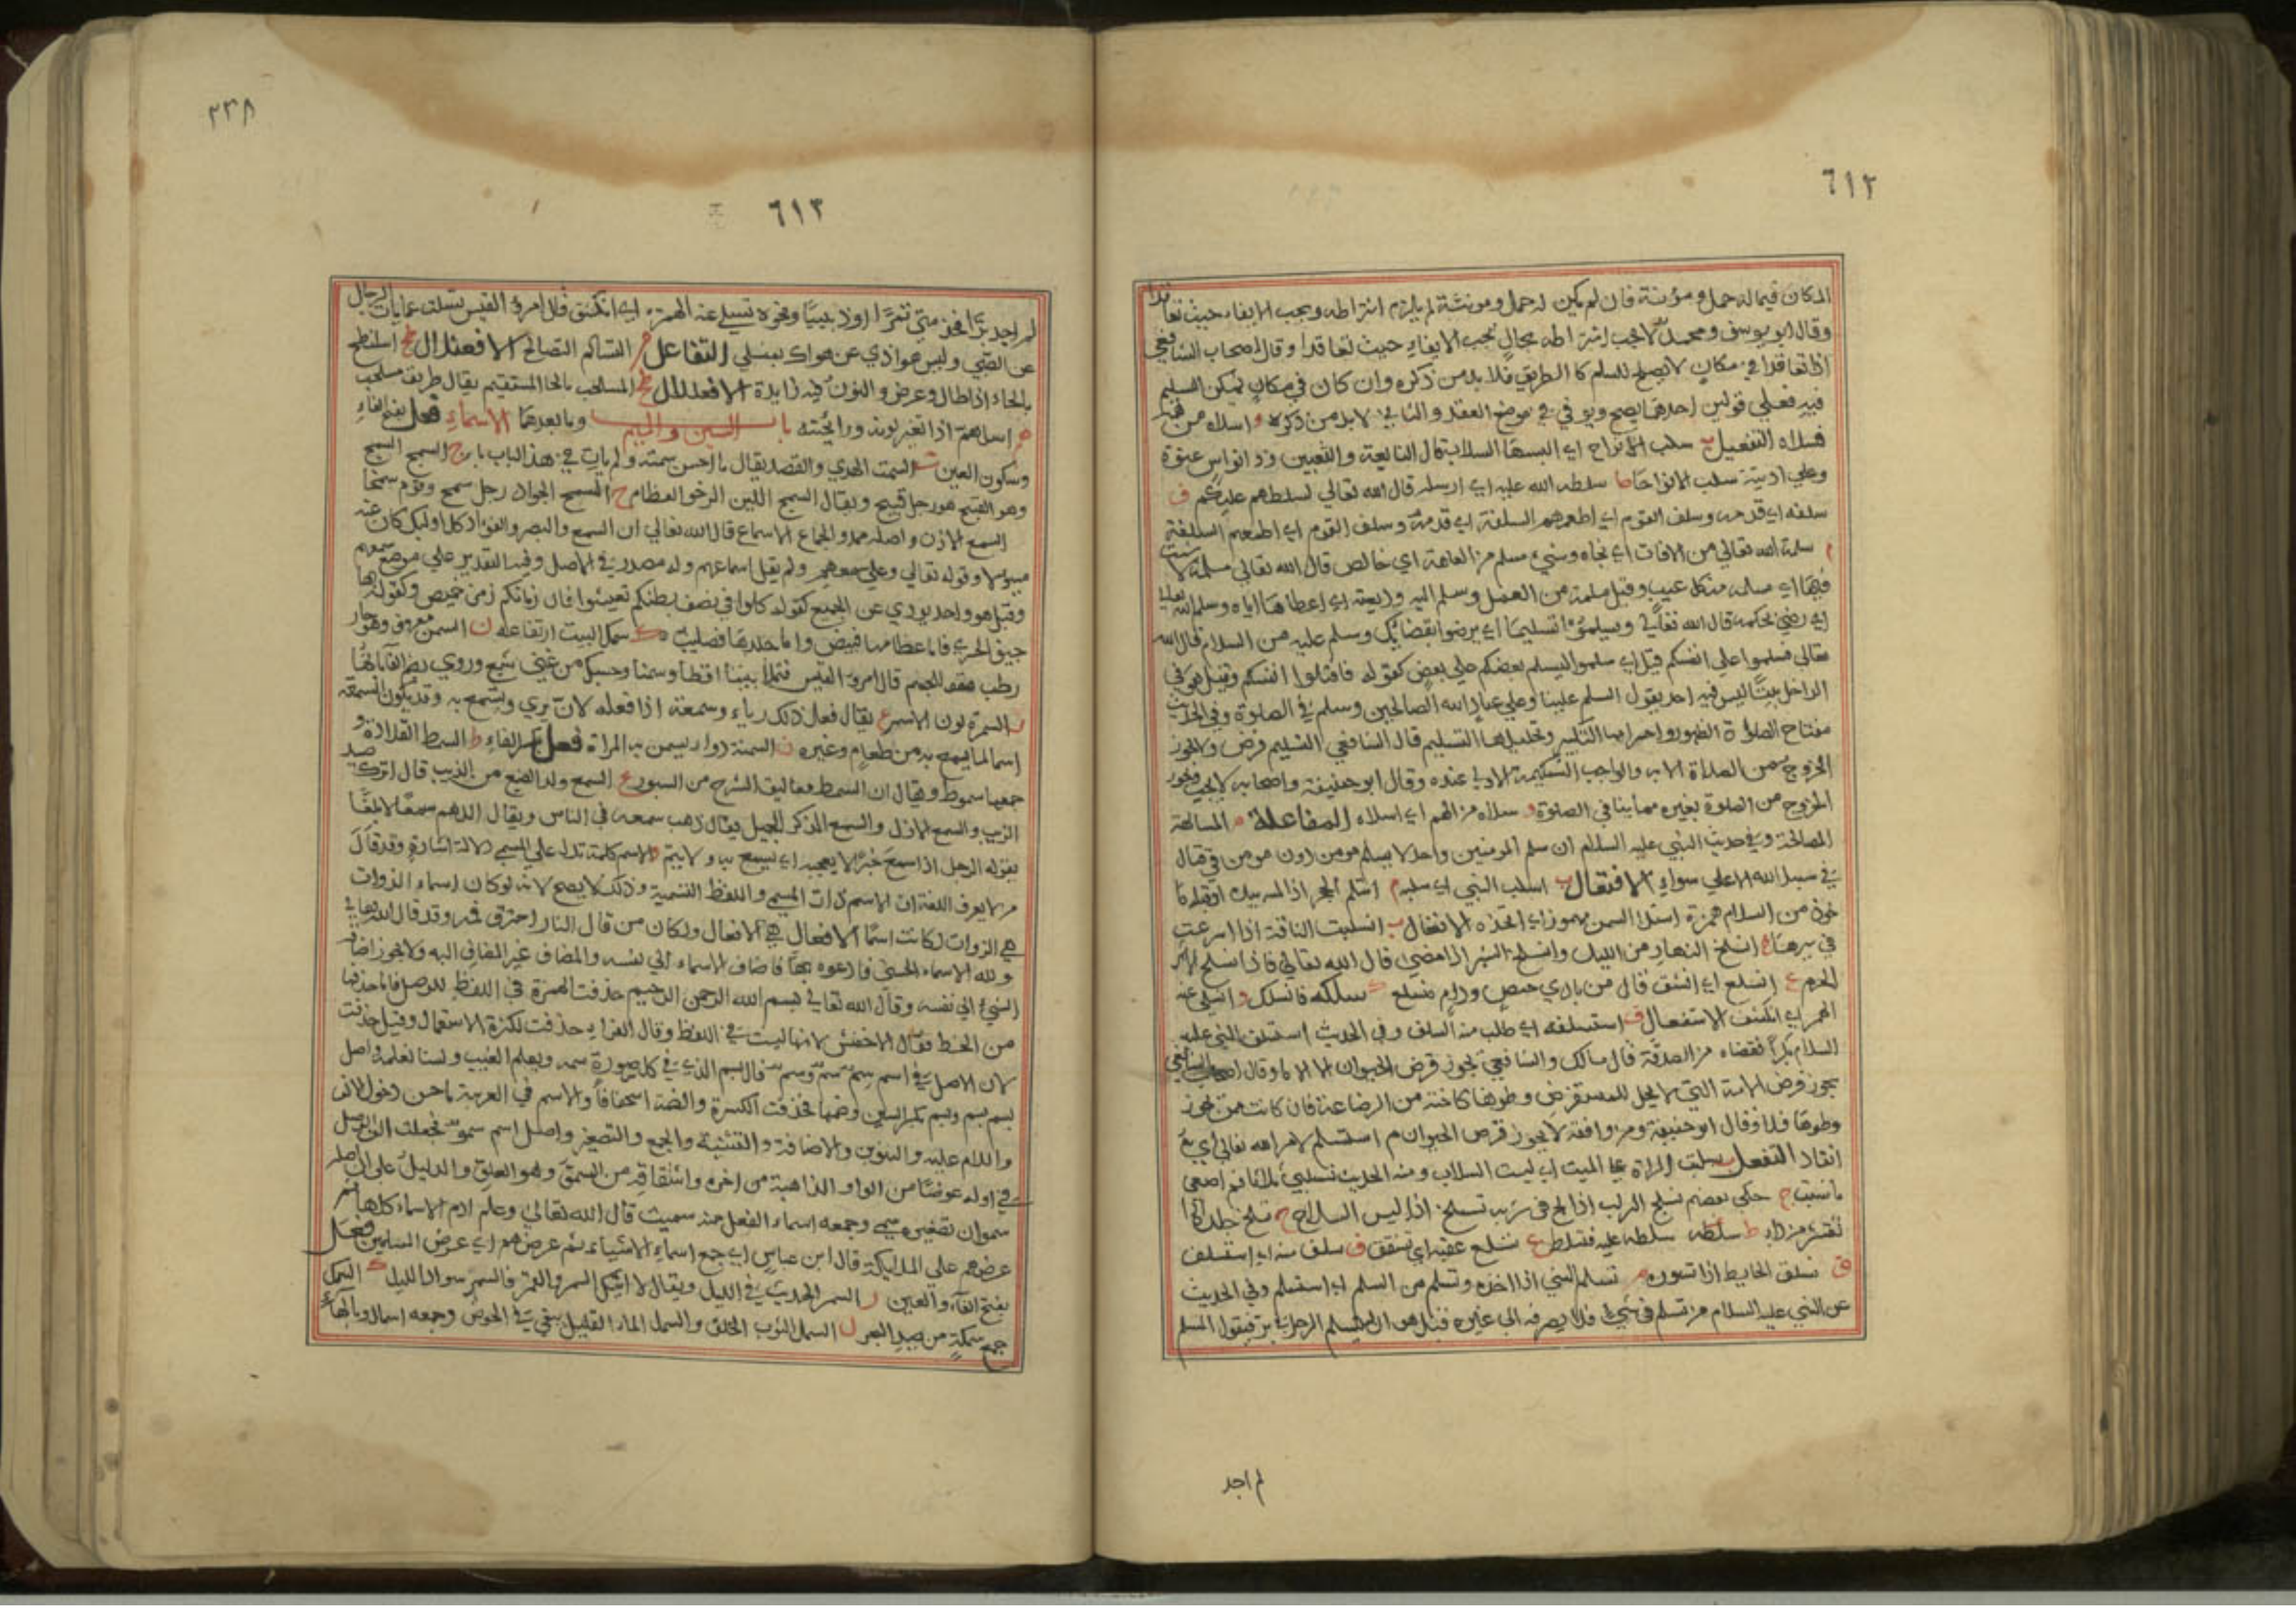 ٦١٢
المكان فيما له حمل ومؤنة فان لم يكن له حمل ومونة لم يلزم اشتراطه ويجب الايفاء حيث تعاقدا
وقال ابو يوسف ومحمد لا يجب اشتراطه بحال يجب الايفاء حيث تعاقدا وقال اصحاب الشافعي
اذا تعاقدا في مكان لا يصلح للسلم كالطريق فلا بد من ذكره وان كان في مكان يمكن التسليم
فيه فعلي قولين احدهما يصح ويوفي في موضع العقد والثاني لا بد من ذكره و اسلاه من همه
فسلاه التفعيل ب سلب الانواح اي البسها السلاب قال
وعلي سلب الانواحا ط سلطه الله عليه اي ارسله قال الله تعالي لسلطهم عليكم ف
سلفه اي قدمه وسلف القوم اي اطعمهم السلفة اي قدمه وسلف القوم اي اطعمهم السلفة
م سلمه الله تعالي من الافات اي نجاه وشيء مسلم من العاهة اي خالص قال الله تعالي مسلمة لا شية
فيها اي مسلمة من كل عيب وقيل مسلمة من العمل وسلم اليه وديعته اي اعطاها اياه وسلم لله تعالي
اي رضي بحكمه قال الله تعالي ويسلموا تسليما اي يرضوا بقضائك وسلم عليه من السلام قال الله
تعالي فسلموا علي انفسكم قيل اي سلموا ليسلم بعضكم علي بعض كقوله فاقتلوا انفسكم وقيل هو في
الداخل بيتا ليس فيه احد يقول السلم علينا وعلي عباد الله الصالحين وسلم في الصلوة وفي الحديث
مفتاح الصلاة الطهور واحرامها التكبير وتحليلها التسليم قال الشافعي التسليم فرض ولا يجوز
الخروج من الصلاة الا به والواجب التسليمة الاولي عنده وقال ابو حنيفة واصحابه لا يجب ويجوز
الخروج من الصلوة بغيره مما ينافي الصلوة و سلاه من الهم اي اسلاه المفاعلة م المسالمة
المصالحة وفي حديث النبي عليه السلام ان سلم المومنين واحد لا يسالم مومن دون مومن في قتال
في سبيل الله الا علي سواء الافتعال ب استلب الشي اي سلبه م استلم الحجر اذا لمسه بيده او قبله
من السلام همزة استلا السمن مهموز اي اتخذه الانفعال ب انسلبت الناقة اذا اسرعت
في سيرها خ انسلخ النهار من الليل وانسلخ الشهر اذا مضي قال الله تعالي فاذا انسلخ الاشهر
الحرم ع انسلع اي انشق قال من بادي حصص ودام منسلع ك سلكه فانسلك و انسلي عنه
الهم اي انكشف الاستفعال ف استسلفه اي طلب منه السلف وفي الحديث استسلف النبي عليه
السلام بكرا فقضاه من الصدقة قال مالك والشافعي يجوز قرض الحيوان الا الاما وقال اصحاب الشافعي
يجوز قرض الامة التي لا يحل للمستقرض وطوها كاخته من الرضاعة فان كانت ممن يجوز
وطوها فلا وقال ابو حنيفة ومن وافقه لا يجوز قرض الحيوان م استسلم لامر الله تعالي اي
انقاد التفعل ب تسلبت المراة علي الميت اي لبست السلاب ومنه الحديث تسلبي ثلاثا ثم اصنعي
ما شئت ج حكي بعضهم تسلج الشراب اذا الح في شربه تسلح اذا لبس السلاح خ تسلخ جلده اذا
تقشر من داء ط سلطه سلطه عليه فتسلط ع تسلع عقبه اي تشقق ف تسلف منه اي استسلف
ق تسلق الحايط اذا تسوره م تسلم الشي اذا اخذه وتسلم من السلم اي استسلم وفي الحديث
عن النبي عليه السلام من تسلم في شيء فلا يصرفه الي غيره قيل هو ان يسلم الرجل في بر فيقول المسلم
لم اجد
٢٣٨
٦١٣
لم اجد برا فخذ مني تمرا او زبيبا ونحوه تسلي عنه الهم اي انكشف قال امرؤ القيس تسلت عمايات الرجال
عن الصبي وليس فوادي عن هواك بمنسلي التفاعل م التسالم التصالح الافعنلال ح اسلنطح
بالحاء اذا طال وعرض والنون فيه زايدة الافعلال ح المسلحب بالحا المستقيم يقال طريق مسلحب
م اسلهم اذا تغير لونه ورائحته باب السين والميم وما بعدهما الاسماء فعل بفتح الفاء
وسكون العين ت السمت الهدي والقصد يقال ما احسن سمته ولم يات في هذا الباب با ج السمج السمج
وهو القبيح هو رجل قبيح ويقال السمج اللبن الرخو العظام ح السمح الجواد رجل سمح وقوم سمحا
السمع الاذن واصله مصدر والجماع الاسماع قال الله تعالي ان السمع والبصر والفؤاد كل اوليك كان عنه
مسؤلا وقوله تعالي وعلي سمعهم ولم يقل اسماعهم ولانه مصدر في الاصل وقيل التقدير علي موضع سمعهم
وقيل هو واحد يودي عن الجميع كقوله كلوا في نصف بطنكم تعيشوا فان زمانكم زمن خميص وكقوله بها
جيف الحسري فاما عظامها فبيض واما جلدها فصليب ك سمك البيت ارتفاعه ن السمن معروف وهو حار
رطب قال امرؤ القيس فتملأ بيتنا اقطا وسمنا وحسبك من غني شبع وروي
ر السمرة لون الاسمر ع يقال فعل ذلك رياء وسمعة اذا فعله لان يري ويسمع به وقد يكون السمعة
اسما لما يسمع به من طعام وغيره ن السمنة دواء يسمن به المراة فعل بكسر الفاء ط السمط القلادة و
جمعها سموط ويقال ان السمط معاليق السرج من السيور ع السمع ولد الضبع من الذيب قال
الذيب والسمع الازل والسمع الذكر الجميل يقال ذهب سمعه في الناس ويقال اللهم سمعا لا بلغا
يقوله الرجل اذا سمع خبرا لا يعجبه اي يسمع به ولا يتم و الاسم كلمة تدل علي المسمي دلالة اشارة وقد قال
من لا يعرف اللغة ان الاسم ذات المسمي واللفظ التسمية وذلك لا يصح لانه لو كان اسماء الذوات
هي الذوات لكانت اسما الافعال هي الافعال ولكان من قال النار احترق فمه وقد قال الله تعالي
ولله الاسماء الحسني فادعوه بها فاضاف الاسماء الي نفسه والمضاف غير المضاف اليه ولا يجوز اضافة
الشيء الي نفسه وقال الله تعالي بسم الله الرحمن الرحيم حذفت الهمزة في اللفظ للوصل فاما حذفها
من الخط فقال الاخفش لانها ليست في اللفظ وقال الفراء حذفت لكثرة الاستعمال وقيل حذفت
لان الاصل في اسم سم وسم قال بسم الذي في كل صورة سمه ويعلم الغيب ولسنا نعلمه واصل
بسم بسم وبسم بكسر السين وضمها فحذفت الكسرة والضمة استخفافا والاسم في العربية ما حسن دخول الالف
واللام عليه والتنوين والاضافة والتثنية والجمع والتصغير واصل اسم سمو فجعلت الف الوصل
في اوله عوضا من الواو الذاهبة من اخره واشتقاقه من السمو وهو العلو والدليل علي ان اصله
سمو ان تصغيره سمي وجمعه اسماء الفعل منه سميت قال الله تعالي وعلم ادم الاسماء كلها ثم
عرضهم علي الملايكة قال ابن عباس اي جميع اسماء الاشياء ثم عرضهم اي عرض المسلمين فعل
بفتح الفاء والعين ر السمر الحديث في الليل ويقال لا اتيتك السمر والقمر فالسمر سواد الليل ك السمك
جمع سمكة من صيد البحر ل السمل الثوب الخلق والسمل الماء القليل يبقي في الحوض وجمعه اسمال وبالهاء